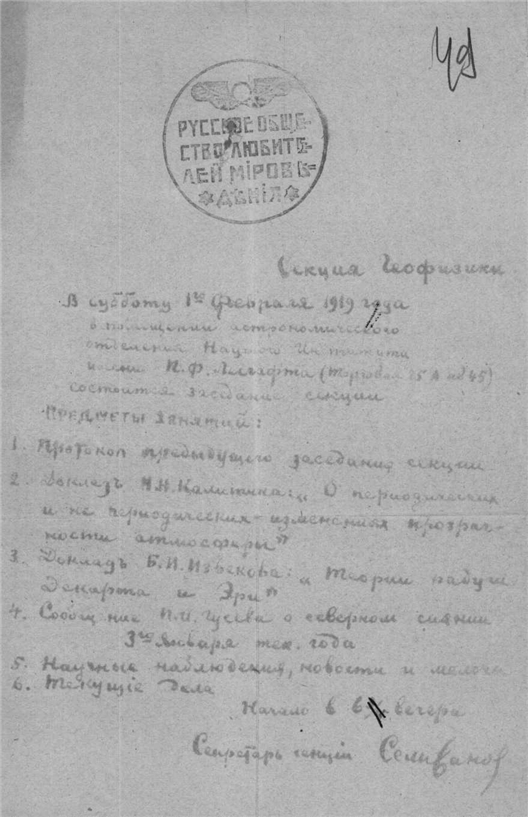 49
РУССКОЕ ОБЩЕ-
СТВО ЛЮБИТЕ-
ЛЕЙ МІРОВЕ-
ДѢНІЯ
Секция Геофизики
В субботу 1го Февраля 1919 года
в помещении астрономического
отделения Научного Института
имени П.Ф. Лесгафта (Торговая 25 А кв 45)
состоится заседание секции
ПРЕДМЕТЫ ЗАНЯТИЙ:
1. Протокол предыдущего заседания секции
2. Докладъ Н.Н. Калитина: „О периодических
и не периодических изменениях прозрач-
ности атмосферы"
3. Докладъ Б.И. Извекова: „Теории радуги
Декарта и Эри"
4. Сообщение П.И. Гусева о северном сиянии
3го января тек. года
5. Научные наблюдения, новости и мелочи
6. Текущіе дела
Начало в 6 ч вечера
Секретарь секціи Селиванов